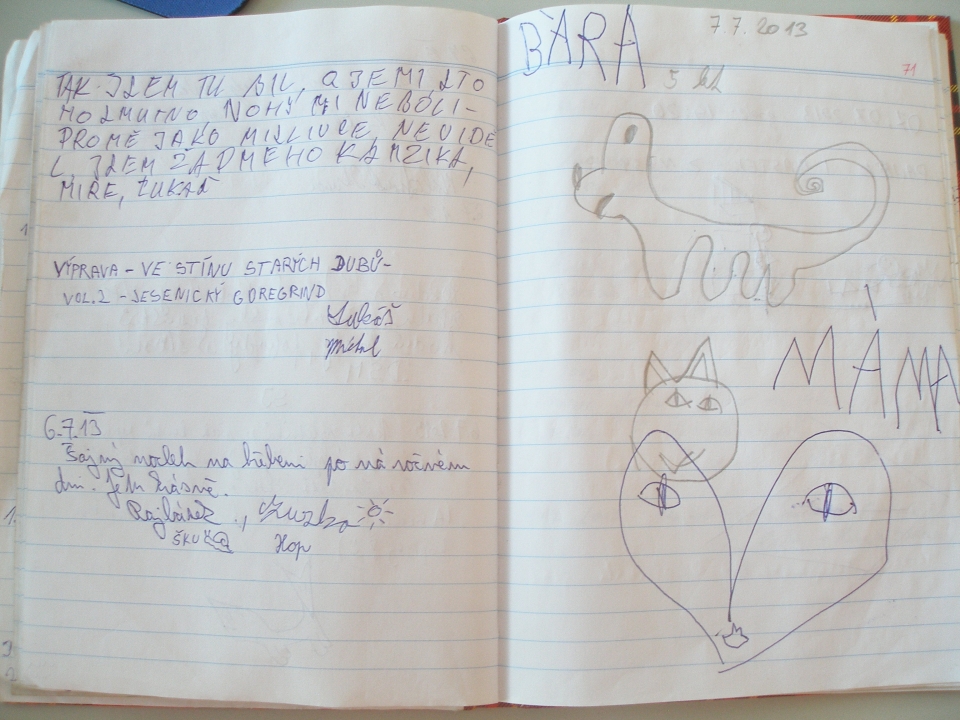 TAK JSEM TU BIL, A JE MI ZTO
HO SMUTNO, NOHY MI NEBOLI-
PROMĚ JAKO MISLIVCE, NEVIDE
L JSEM ŽADMEHO KAMZIKA,
MIRE, LUKAŠ
VÝPRAVA - VE STÍNU STARÝCH DUBŮ-
VOL.2 - JESENICKÝ GOREGRIND
Lukáš
Michal
6.7.13
Šajny nocleh na hřebeni po náročném
dni. Je tu krásně.
Zuzka
ŠKU
Hop
BÁRA
7.7.2013
71
5 let
MAMA